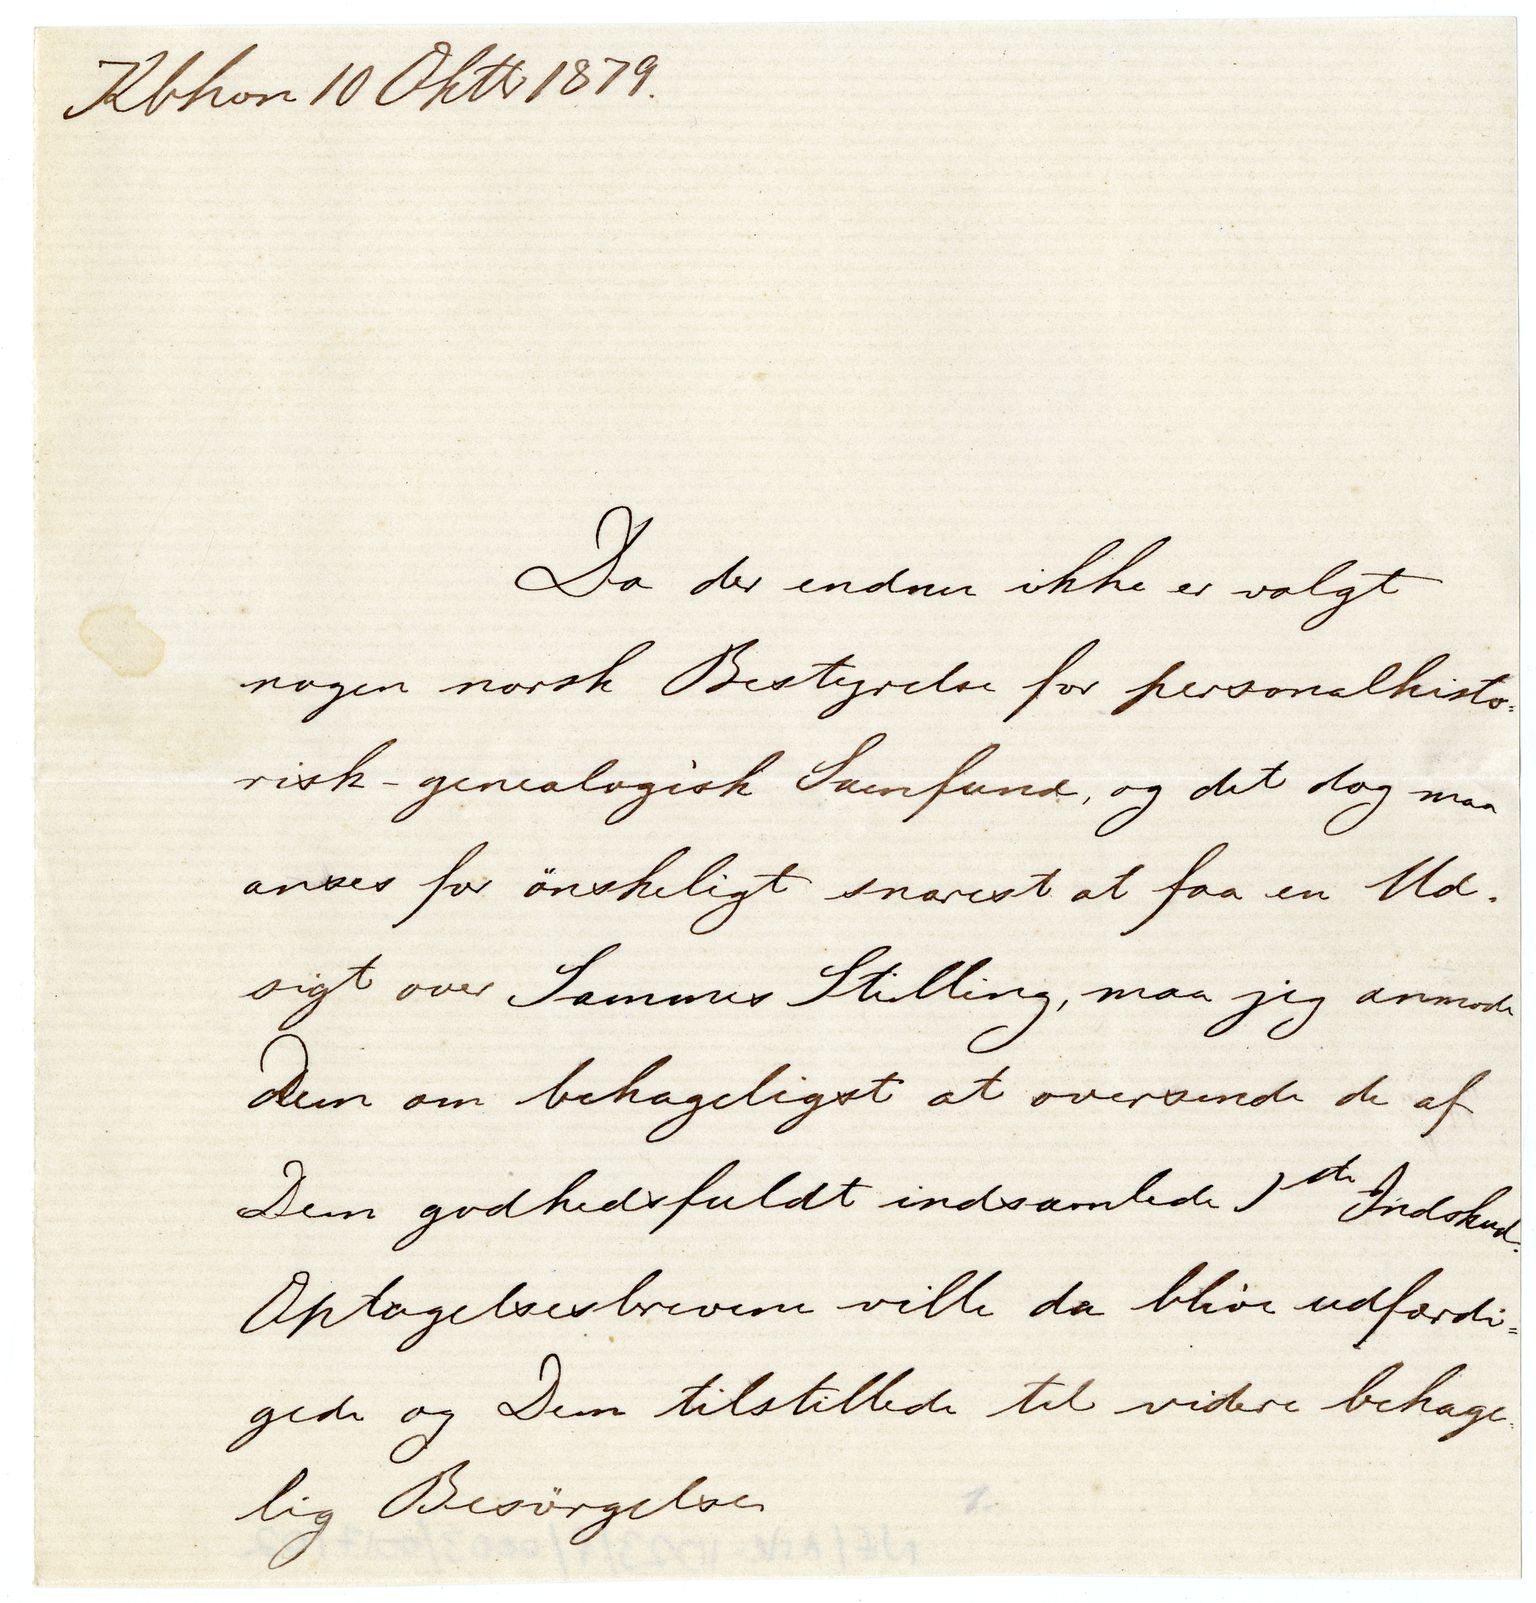 Kbhvn 10 Oktbr 1879.
Da der endnu ikke er valgt
nogen norsk Bestyrelse for personalhisto=
risk-genealogisk Samfund, og det dog maa
anses for önskeligt snarest at faa en Ud-
sigt over Sammes Stilling, maa jeg anmode
Dem om behageligst at oversende de af
Dem godhedsfuldt indsamlede 1ste Indskud.
Optagelsesbrevene ville da blive udfærdi=
gede og Dem tilstillede til videre behage-
lig Besörgelse